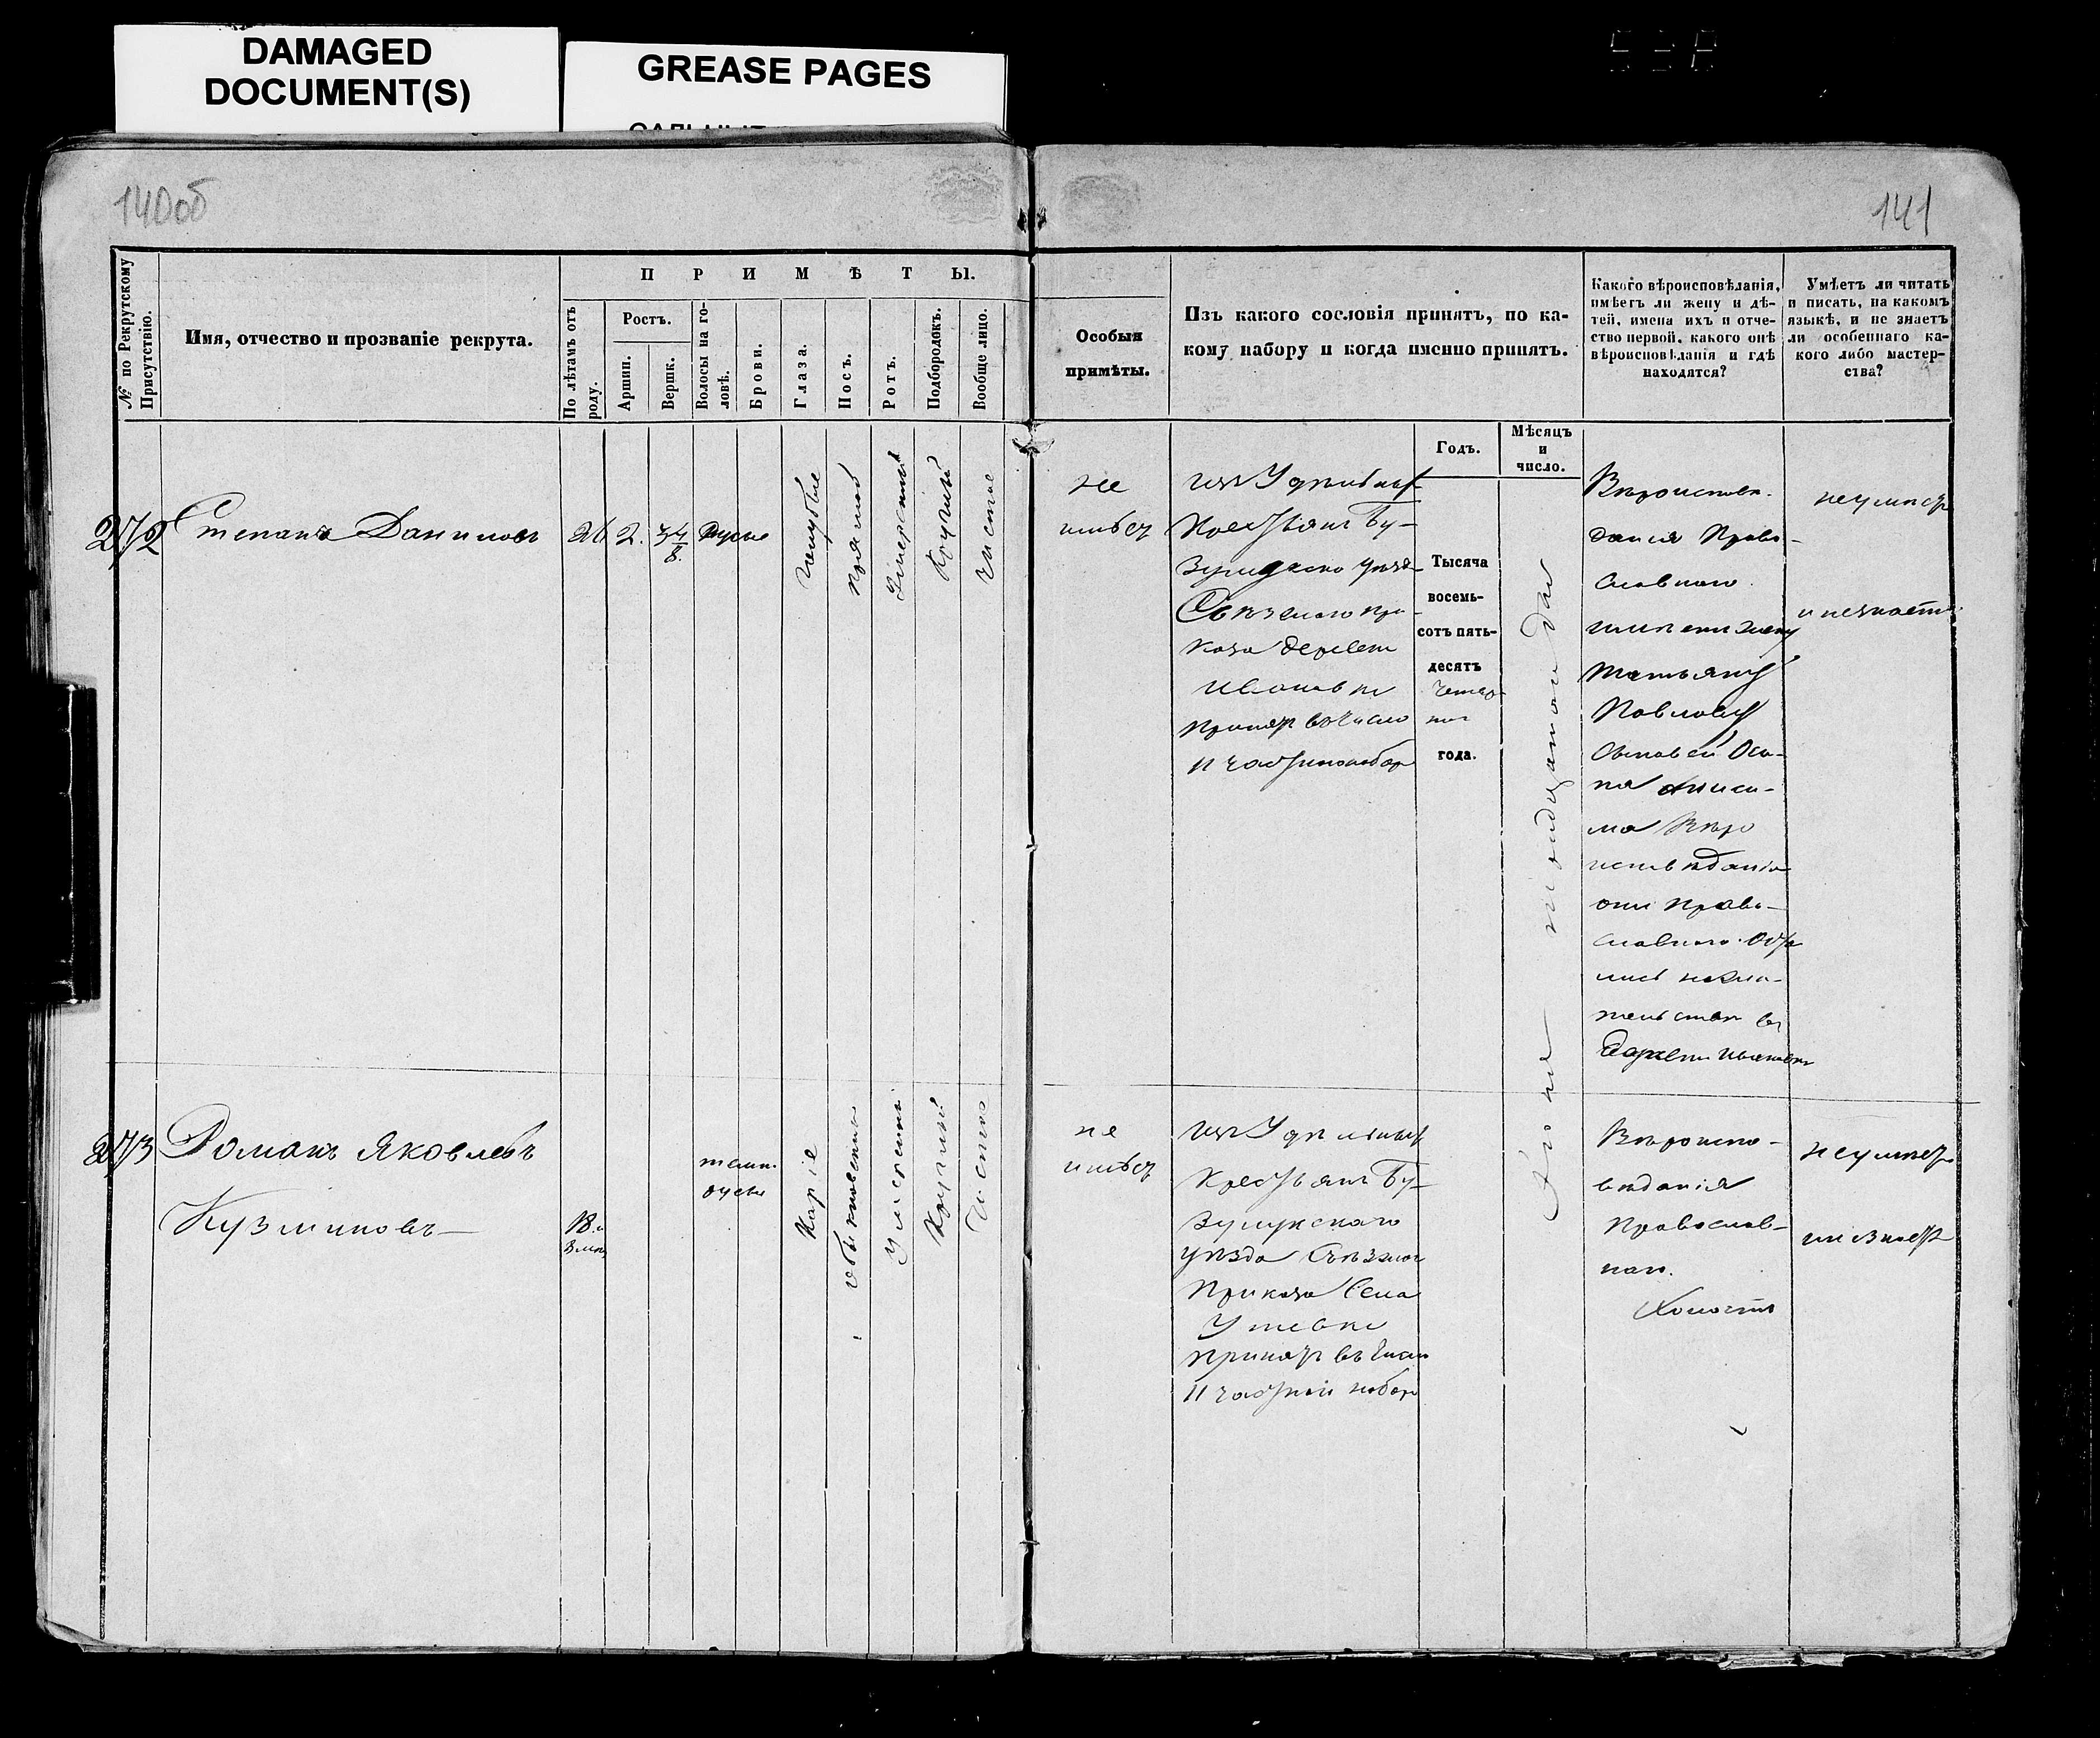 DAMAGED
DOCUMENT(S)
GREASE PAGES
140об
141
№ по Рекрутскому
Присутствію.
Имя, отчество и прозваніе рекрута.
П Р И М Ѣ Т Ы.
По лѣтамъ отъ
роду.
Ростъ.
Аршин.
Вершк.
Волосы на го-
ловѣ.
Брови.
Глаза.
Носъ.
Ротъ.
Подбородокъ.
Вообще лицо.
Особыя
примѣты.
Изъ какого сословія принятъ, по ка-
кому набору и когда именно принятъ.
Какого вѣроисповѣданія,
имѣетъ ли жену и дѣ-
тей, имена ихъ и отче-
ство первой, какого онѣ
вѣроисповѣданія и гдѣ
находятся?
Умѣетъ ли читать
и писать, на какомъ
языкѣ, и не знаетъ
ли особеннаго ка-
кого либо мастер-
ства?
Годъ.
Мѣсяцъ
и
число.
272
Степанъ Даниловъ
26
2.
3 4/8.
Русые
голубые
прямой
умеренный
Круглый
чистое
не
имѣет
изъ Удѣльных
Крестьянъ Бу-
Зулукско уѣзд
Съѣзжаго при
каза деревни
Ивановки
принятъ въ число
11 частного набор
Тысяча
восемь-
сотъ пять-
десятъ
четвер-
таго
года.
Вѣроиспове-
дания Право-
славнаго
имѣетъ жену
Татьяну
Павлову
Сыновей Оси-
па Аниси-
ма Вѣро
исповѣданія
они Право-
славнаго
жительство въ
деревни Ивановки
неумѣетъ
и незнаетъ
273
Романъ Яковлевъ
Кузминовъ
18.
3 мѣс
темн.
русые
Каріе
обыкновенны
умерены
Круглый
Чисто
не
имѣет
изъ Удѣльных
Крестьянъ Бу-
Зулукскаго
уѣзда Съѣзжаг
Приказа Села
Утевки
принятъ въ число
11 частной набор
Вѣроиспо-
вѣданія
Православ-
наго.
Холостъ
неумѣетъ
инезнаетъ